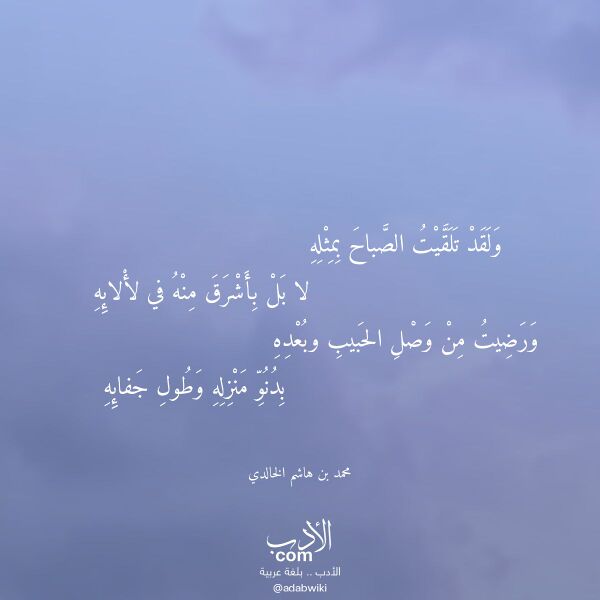 وَلَقَدْ تَلَقَّيْتُ الصَّباحَ بِمِثْلِهِ
لا بَلْ بِأَشْرَقَ مِنْهُ في لأْلائِهِ
وَرَضِيتُ مِنْ وَصْلِ الحَبيبِ وبُعْدِهِ
بِدُنُوِّ مَنْزِلِهِ وَطُولِ جَفائِهِ
محمد بن هاشم الخالدي
الأدب
com
الأدب .. بلغة عربية
@adabwiki